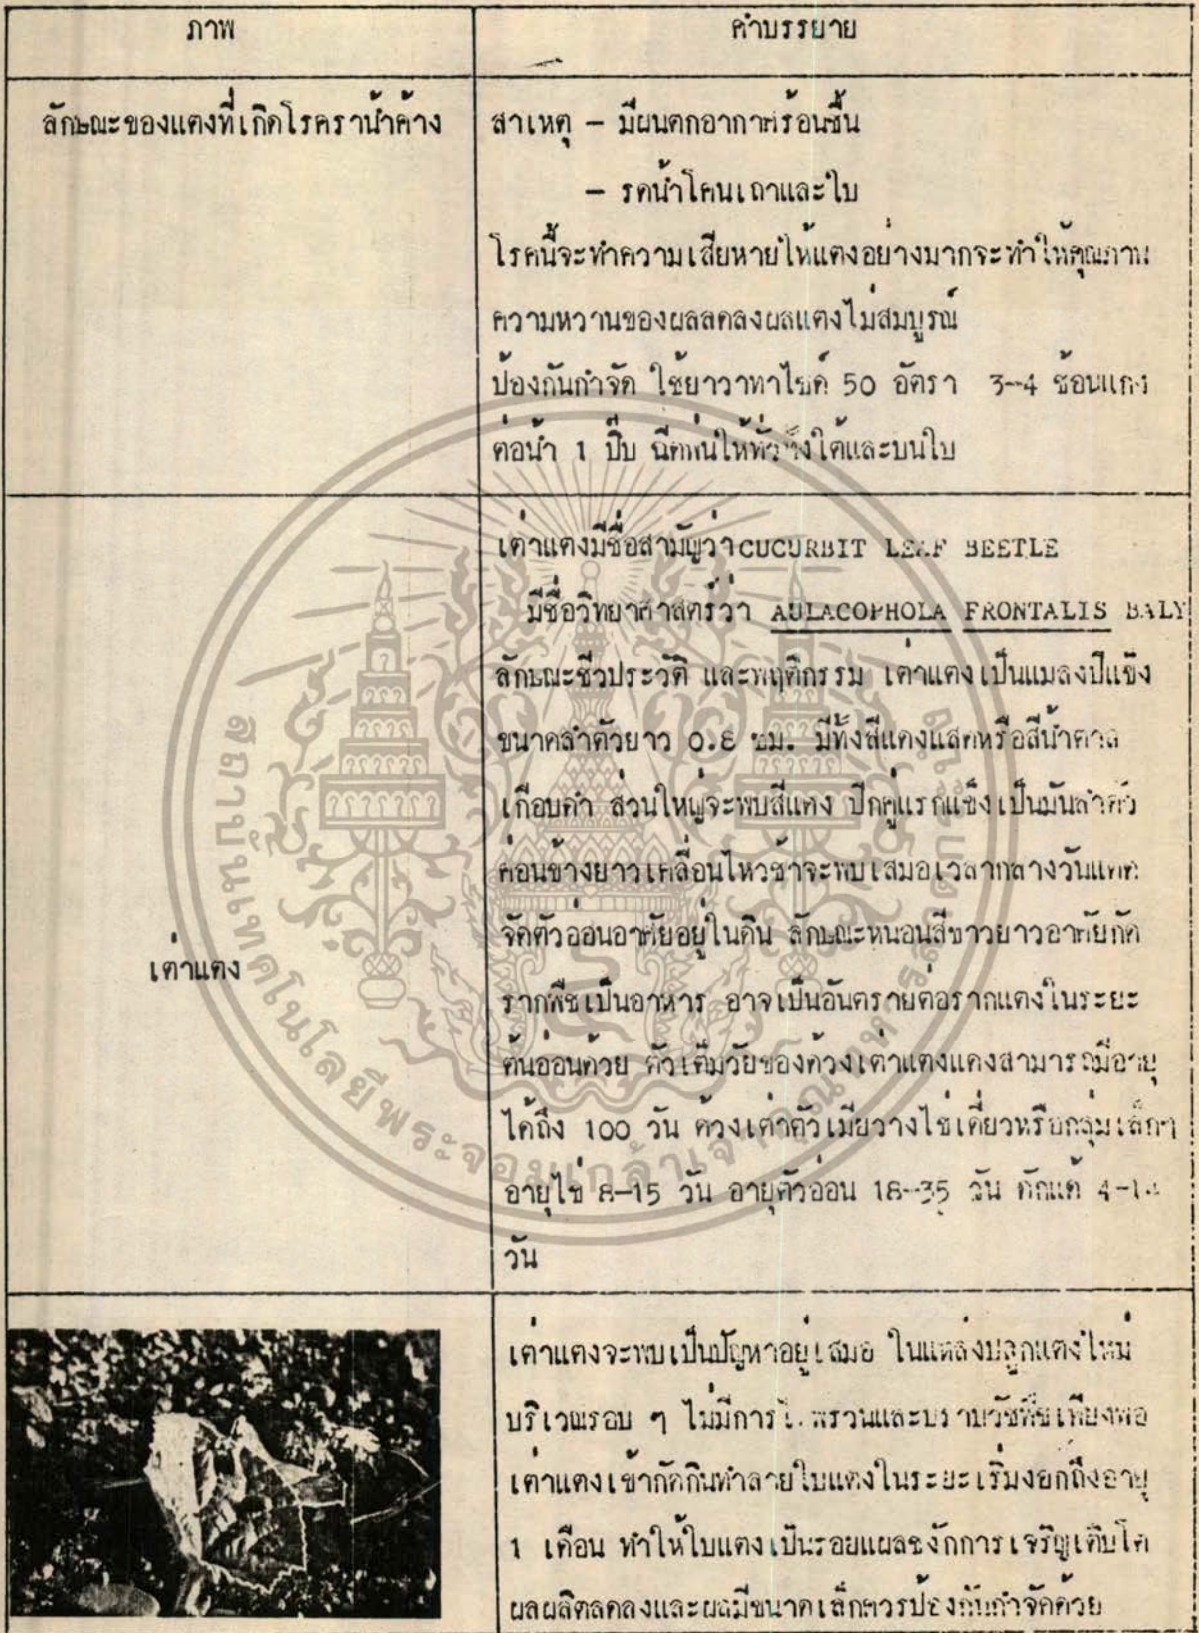 ภาพ
คำบรรยาย
ลักษณะของแตงที่เกิดโรคราน้ำค้าง
สาเหตุ - มีฝนตกอากาศร้อนชื้น
- รดน้ำโดนเถาและใบ
โรคนี้จะทำความเสียหายให้แตงอย่างมากจะทำให้คุณภาพ
ความหวานของผลลดลงผลแตงไม่สมบูรณ์
ป้องกันกำจัด ใช้ยาวาทาไซด์ 50 อัตรา 3-4 ช้อนแกง
ต่อน้ำ 1 ปี๊บ ฉีดพ่นให้ทั่วทั้งใต้และบนใบ
เต่าแตง
เต่าแตงมีชื่อสามัญว่า CUCURBIT LEAF BEETLE
มีชื่อวิทยาศาสตร์ว่า AULACOPHOLA FRONTALIS BALY
ลักษณะชีวประวัติ และพฤติกรรม เต่าแตงเป็นแมลงปีแข็ง
ขนาดลำตัวยาว 0.8 ซม. มีทั้งสีแดงแสดหรือสีน้ำตาล
เกือบดำ ส่วนใหญ่จะพบสีแดง ปีกคู่แรกแข็งเป็นมันลำตัว
ค่อนข้างยาวเคลื่อนไหวช้าจะพบเสมอเวลากลางวันแดด
จัดตัวอ่อนอาศัยอยู่ในดิน ลักษณะหนอนสีขาวยาวอาศัยกัด
รากพืชเป็นอาหาร อาจเป็นอันตรายต่อรากแตงในระยะ
ต้นอ่อนด้วย ตัวเต็มวัยของด้วงเต่าแตงแดงสามารถมีอายุ
ได้ถึง 100 วัน ด้วงเต่าตัวเมียวางไข่เดี่ยวหรือกลุ่มเล็กๆ
อายุไข่ 8-15 วัน อายุตัวอ่อน 18-35 วัน ดักแด้ 4-14
วัน
เต่าแตงจะพบเป็นปัญหาอยู่เสมอ ในแหล่งปลูกแตงใหม่
บริเวณรอบ ๆ ไม่มีการไถพรวนและปราบวัชพืชเพียงพอ
เต่าแตงเข้ากัดกินทำลายใบแตงในระยะเริ่มงอกถึงอายุ
1 เดือน ทำให้ใบแตงเป็นรอยแผลชงักการเจริญเติบโต
ผลผลิตลดลงและผลมีขนาดเล็กควรป้องกันกำจัดด้วย
สถาบันเทคโนโลยีพระจอมเกล้าเจ้าคุณทหารลาดกระบัง